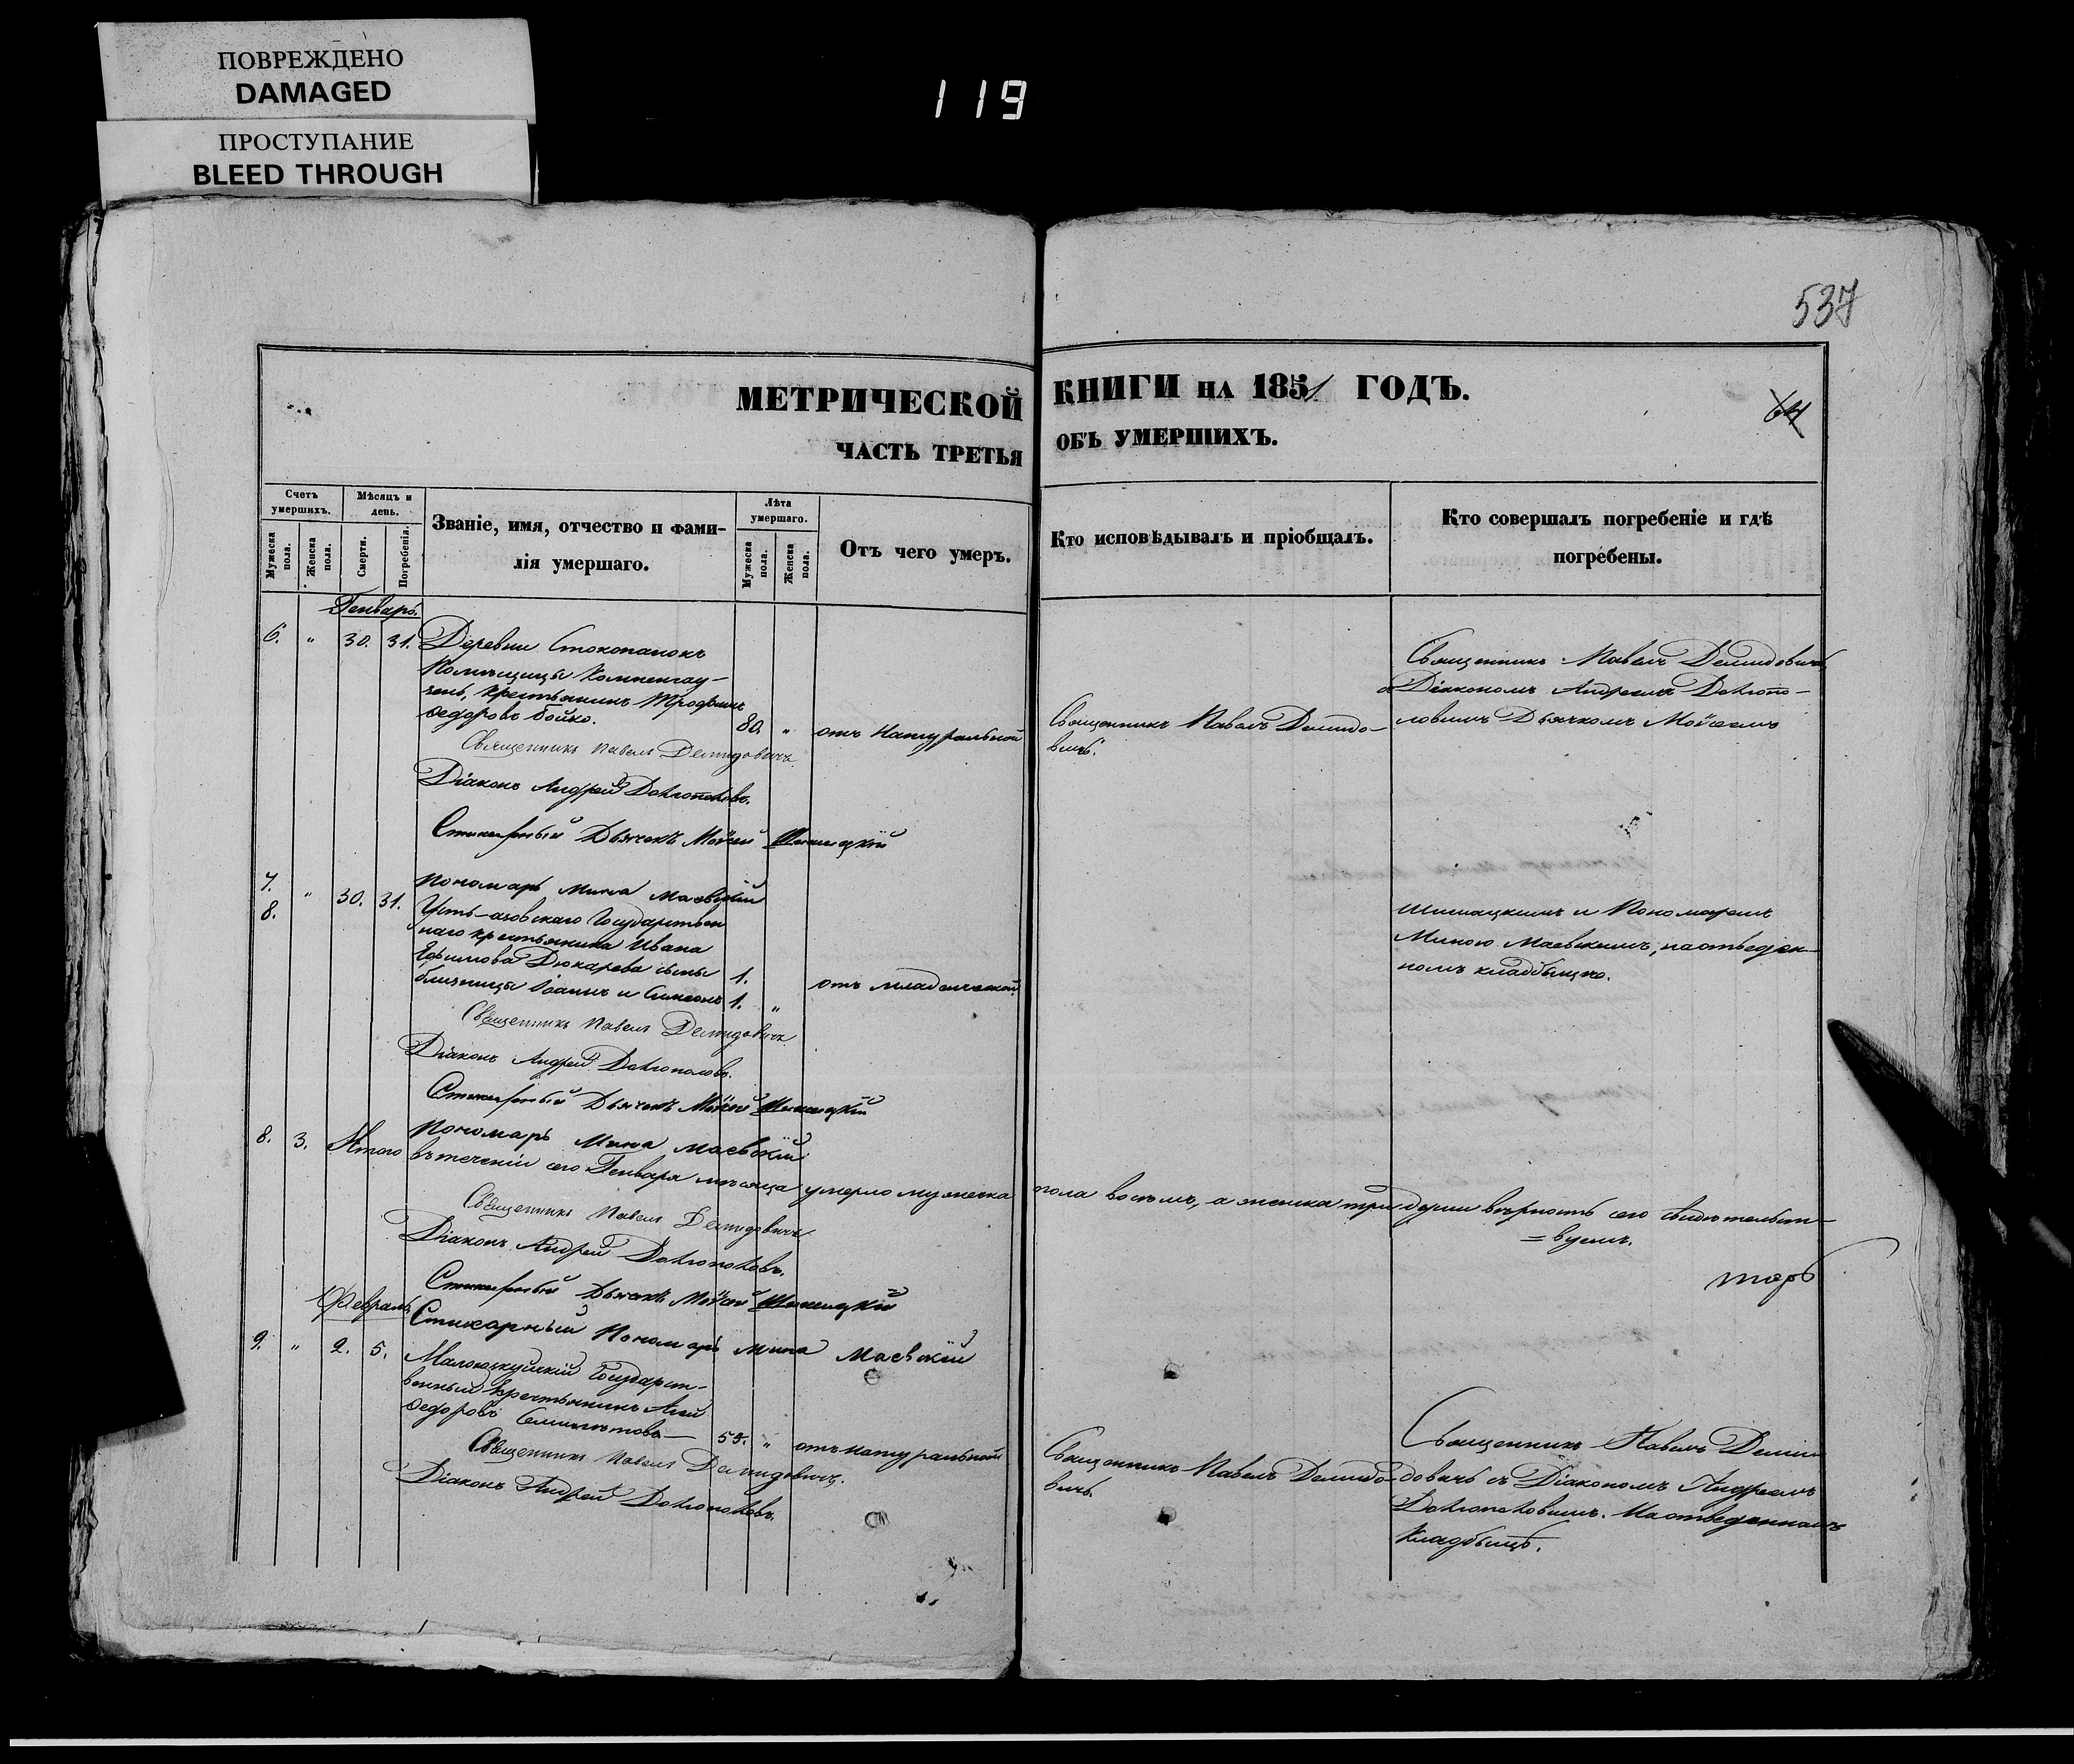 ПОВРЕЖДЕНО
DAMAGED
ПРОСТУПАНИЕ
BLEED THROUGH
119
537
МЕТРИЧЕСКОЙ КНИГИ НА 1851 ГОДЪ.
ЧАСТЬ ТРЕТЬЯ ОБЪ УМЕРШИХЪ.
64
Счетъ умершихъ.
Мужеска пола.
Женска пола.
Мѣсяцъ и день.
Смерти.
Погребенія.
Званіе, имя, отчество и фами-
лія умершаго.
Лѣта умершаго.
Мужеска пола.
Женска пола.
Отъ чего умеръ.
Кто исповѣдывалъ и пріобщалъ.
Кто совершалъ погребеніе и гдѣ
погребены.
Генварь.
6. " 30. 31. Деревни
Помѣщицы
крестьянинъ
Федоровъ Бойко. 80. " отъ Натуральной
Священникъ Павелъ Демидо-
вичъ.
Священникъ Павелъ Демидовичъ
съ Діакономъ Андреемъ Долгопо-
ловымъ Дьячкомъ Моѵсеемъ
Священникъ Павелъ Демидовичъ.
Діаконъ Андрей Долгополовъ.
Стихарный Дьячекъ Моѵсей Шишацкій
Пономарь Мина Маевскій
7. " 30. 31.
8.
Усть-азовскаго Государствен
наго крестьянина Ивана
Ефимова Дюкарева сыны 1.
близнецы Іоаннъ и Симеонъ 1. " отъ младенческой.
Шишацкимъ и Пономаремъ
Миною Маевскимъ, на отведен-
номъ кладбищѣ.
Священникъ Павелъ Демидовичъ
Діаконъ Андрей Долгополовъ.
Стихарный Дьячекъ Моѵсей Шишацкій
Пономарь Мина Маевскій
8. 3. Итого въ теченіи сего Генваря мѣсяца умерло мужеска пола восемь, а женска три души вѣрность сего свидѣтельст-
=вуемъ.
Священникъ Павелъ Демидовичъ
Діаконъ Андрей Долгополовъ.
Стихарный Дьячекъ Моѵсей Шишацкій
Стихарный Пономарь Мина Маевскій
Февраль
9. " 2. 5.
Государст-
венный Крестьянинъ
Федоровъ 55. " отъ натуральной
Священникъ Павелъ Демидо-
вичъ.
Священникъ Павелъ Деми-
довичъ съ Діакономъ Андреемъ
Долгополовымъ. На отведенномъ
Кладбищѣ.
Священникъ Павелъ Демидовичъ.
Діаконъ Андрей Долгополовъ.